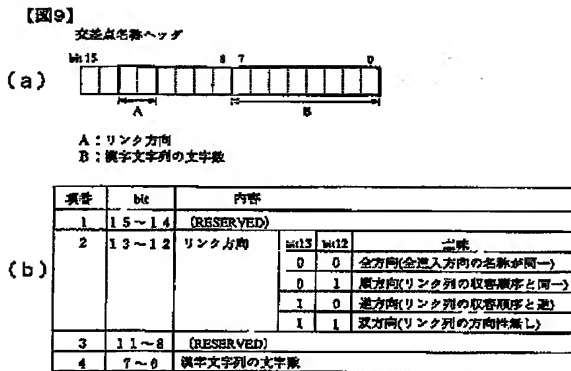 【図9】
交差点名称ヘッダ
bit 15 8 7 0
(a)
A B
A:リンク方向
B:漢字文字列の文字数
(b)
項番 bit 内容
1 15~14 (RESERVED)
2 13~12 リンク方向 bit13 bit12 意味
0 0 全方向(全進入方向の名称が同一)
0 1 順方向(リンク列の収容順序と同一)
1 0 逆方向(リンク列の収容順序と逆)
1 1 双方向(リンク列の方向性無し)
3 11~8 (RESERVED)
4 7~0 漢字文字列の文字数